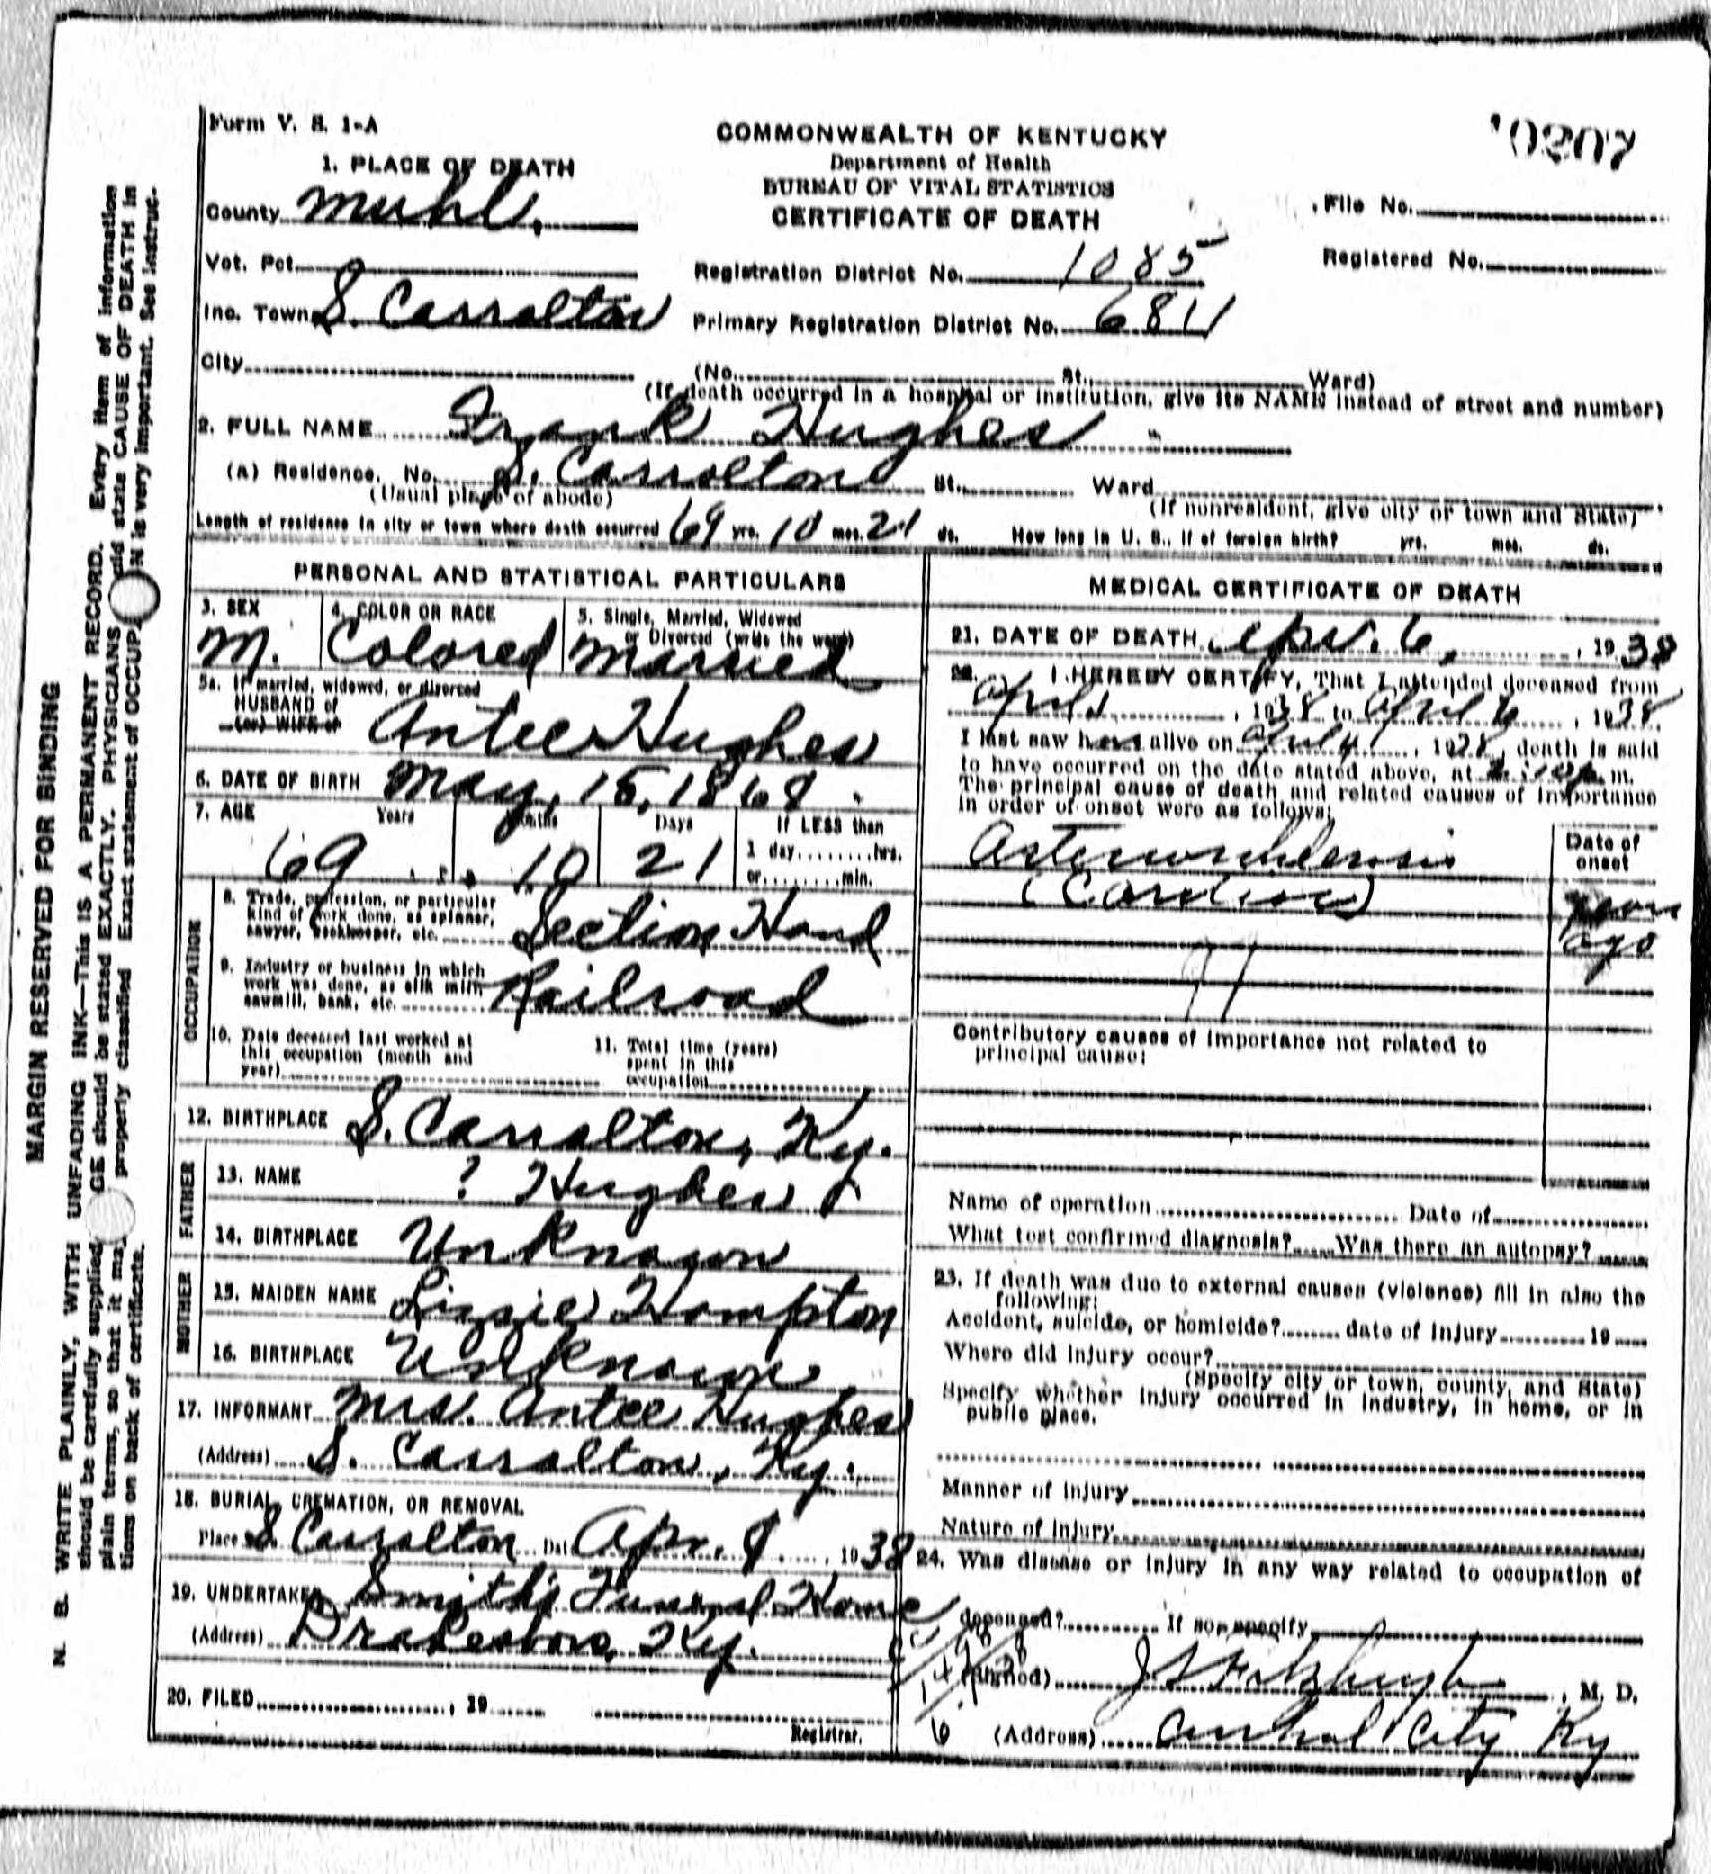 Form V. S. 1-A
COMMONWEALTH OF KENTUCKY
Department of Health
BUREAU OF VITAL STATISTICS
CERTIFICATE OF DEATH
0207
1. PLACE OF DEATH
County Muhl.
File No.
Vot. Pct.
Registration District No. 1085
Registered No.
Inc. Town S. Carralton
Primary Registration District No. 6811
City (No. St. Ward)
(If death occurred in a hospital or institution, give its NAME instead of street and number)
2. FULL NAME Frank Hughes
(a) Residence, No. S. Carralton St. Ward
(Usual place of abode) (If nonresident, give city or town and State)
Length of residence in city or town where death occurred 69 yrs. 10 mos. 21 ds. How long in U. S., if of foreign birth? yrs. mos. ds.
PERSONAL AND STATISTICAL PARTICULARS
3. SEX
M.
4. COLOR OR RACE
Colored
5. Single, Married, Widowed
or Divorced (write the word)
Married
5a. If married, widowed, or divorced
HUSBAND of
(or) WIFE of
Antee Hughes
6. DATE OF BIRTH May, 15, 1868.
7. AGE Years Months Days If LESS than
1 day........hrs.
or........min.
69 10 21
OCCUPATION
8. Trade, profession, or particular
kind of work done, as spinner,
sawyer, bookkeeper, etc. Section Hand
9. Industry or business in which
work was done, as silk mill,
sawmill, bank, etc. Railroad
10. Date deceased last worked at
this occupation (month and
year)
11. Total time (years)
spent in this
occupation
12. BIRTHPLACE S. Carralton, Ky.
FATHER
13. NAME ? Hughes
14. BIRTHPLACE Unknown
MOTHER
15. MAIDEN NAME Lizzie Hampton
16. BIRTHPLACE Unknown
17. INFORMANT Mrs. Antee Hughes
(Address) S. Carralton, Ky.
18. BURIAL, CREMATION, OR REMOVAL
Place S. Carralton Date Apr. 8, 1938
19. UNDERTAKER Smith's Funeral Home
(Address) Drakesboro, Ky.
20. FILED, 19
Registrar.
MEDICAL CERTIFICATE OF DEATH
21. DATE OF DEATH Apr. 6, 1938
22. I HEREBY CERTIFY, That I attended deceased from
April 1, 1938 to April 6, 1938.
I last saw him alive on April, 1938, death is said
to have occurred on the date stated above, at m.
The principal cause of death and related causes of importance
in order of onset were as follows:
Date of
onset
(Cardiac)
years
ago
97
Contributory causes of importance not related to
principal cause:
Name of operation Date of
What test confirmed diagnosis? Was there an autopsy?
23. If death was due to external causes (violence) fill in also the
following:
Accident, suicide, or homicide? date of injury 19
Where did injury occur?
(Specify city or town, county, and State)
Specify whether injury occurred in industry, in home, or in
public place.
Manner of injury
Nature of injury
24. Was disease or injury in any way related to occupation of
deceased? If so, specify
(Signed) J S Fitzhugh, M. D.
(Address) Central City Ky
MARGIN RESERVED FOR BINDING
N. B. WRITE PLAINLY, WITH UNFADING INK—This IS A PERMANENT RECORD. Every item of information
should be carefully supplied. GE should be stated EXACTLY. PHYSICIANS uld state CAUSE OF DEATH in
plain terms, so that it may properly classified. Exact statement of OCCUPA N is very important. See instruc-
tions on back of certificate.